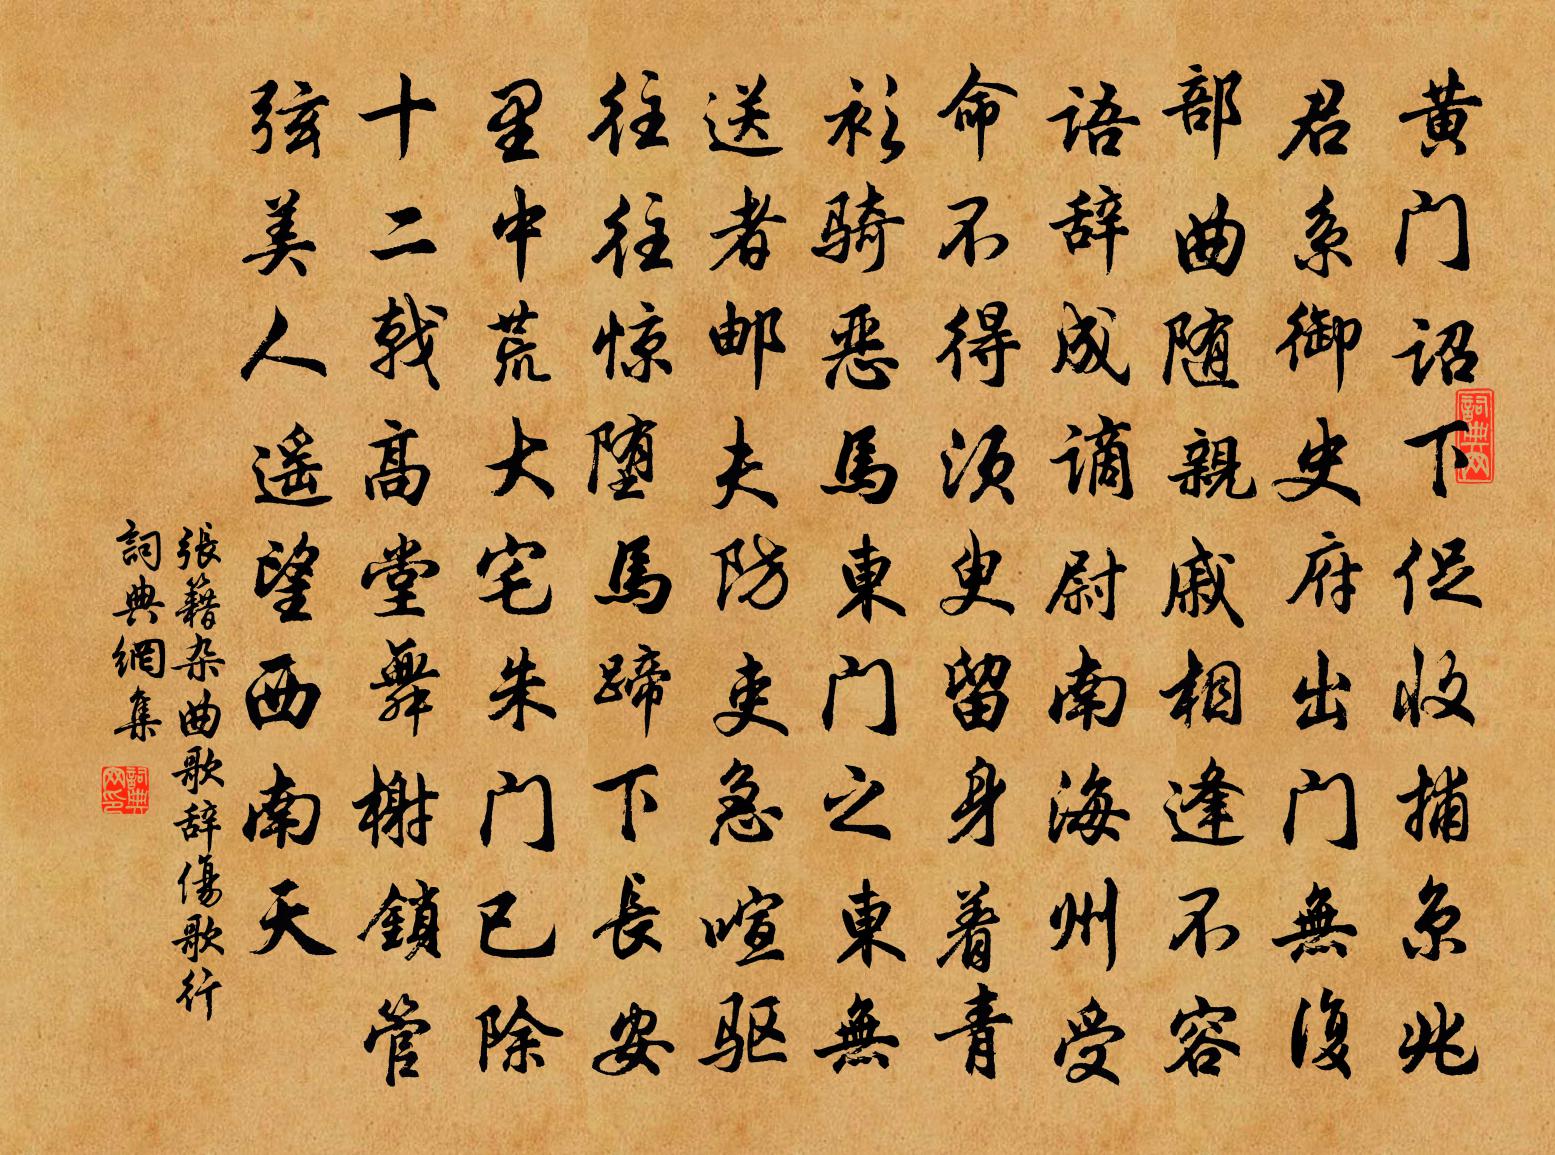 黄门诏下促收捕京兆
君系御史府出门無復
部曲随親戚相逢不容
语辞成谪尉南海州受
命不得须臾留身着青
衫骑恶馬東门之東無
送者邮夫防吏急喧驱
往往惊堕馬蹄下長安
里中荒大宅朱门已除
十二戟高堂舞榭鎖管
弦美人遥望西南天
張籍杂曲歌辞傷歌行
詞典網集
詞典网
詞典网印